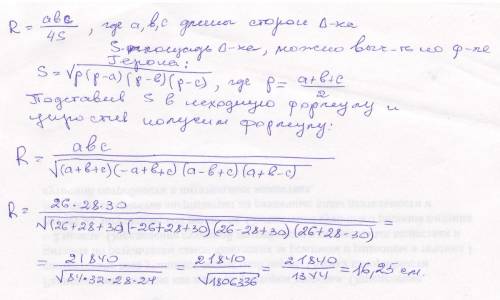 R = abc/4S , где a, b, c длины сторон Δ-ка
S-площадь Δ-ка, можно выч-ть по ф-ле
Герона:
S = √p(p-a)(p-b)(p-c) , где p = a+b+c/2
Подставив S в исходную формулу и
упростив получим формулу:
R = abc/√(a+b+c)(-a+b+c)(a-b+c)(a+b-c)
R = 26·28·30/√(26+28+30)(-26+28+30)(26-28+30)(26+28-30) =
= 21840/√84·32·28·24 = 21840/√1806336 = 21840/1344 = 16,25 см.